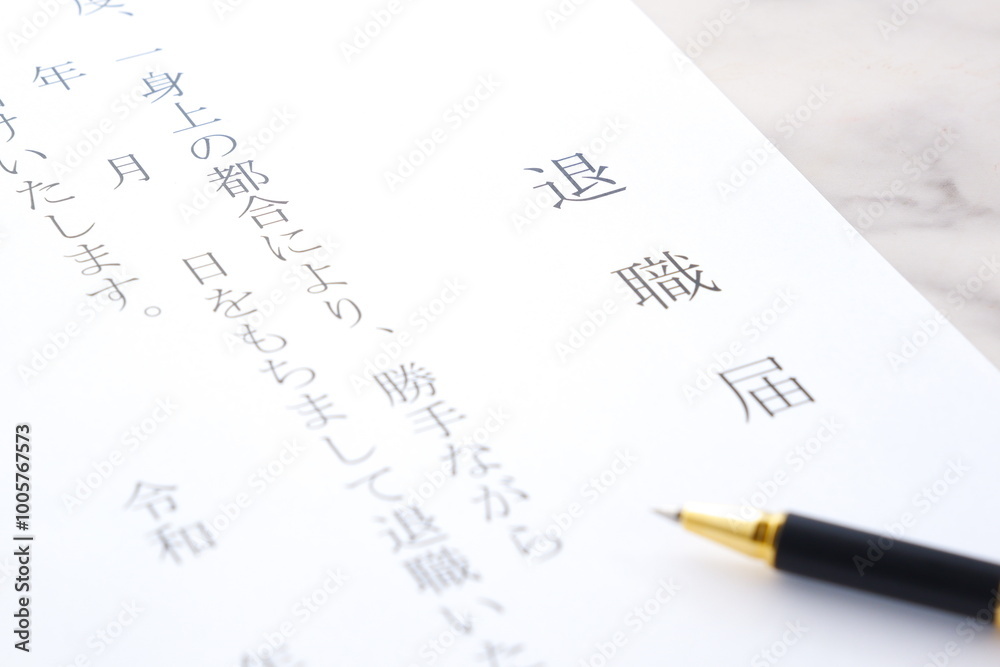 退職届
度、一身上の都合により、勝手ながら
年 月 日をもちまして退職いた
けいたします。
令和 年
Adobe Stock | #1005767573